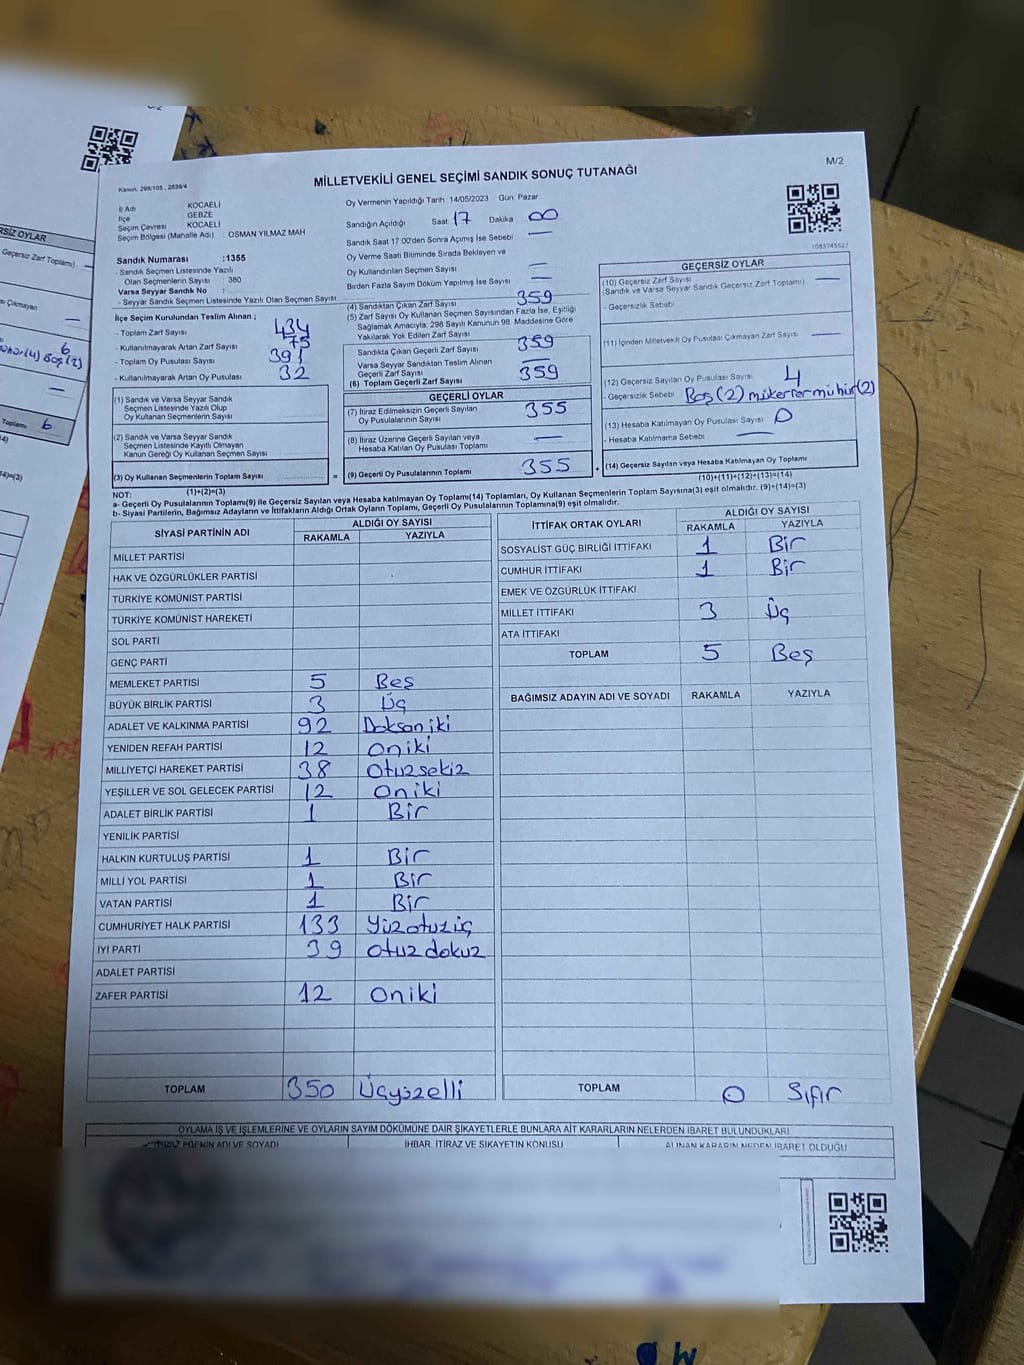 M/2
MİLLETVEKİLİ GENEL SEÇİMİ SANDIK SONUÇ TUTANAĞI
Kanun: 298/105 , 2839/4
İl Adı KOCAELİ
İlçe GEBZE
Seçim Çevresi KOCAELİ
Seçim Bölgesi (Mahalle Adı) : OSMAN YILMAZ MAH
Sandık Numarası :1355
- Sandık Seçmen Listesinde Yazılı
Olan Seçmenlerin Sayısı : 380
Varsa Seyyar Sandık No :
- Seyyar Sandık Seçmen Listesinde Yazılı Olan Seçmen Sayısı
İlçe Seçim Kurulundan Teslim Alınan ;
- Toplam Zarf Sayısı 434
- Kullanılmayarak Artan Zarf Sayısı 75
- Toplam Oy Pusulası Sayısı 391
- Kullanılmayarak Artan Oy Pusulası 32
(1) Sandık ve Varsa Seyyar Sandık
Seçmen Listesinde Yazılı Olup
Oy Kullanan Seçmenlerin Sayısı
(2) Sandık ve Varsa Seyyar Sandık
Seçmen Listesinde Kayıtlı Olmayan
Kanun Gereği Oy Kullanan Seçmen Sayısı
(3) Oy Kullanan Seçmenlerin Toplam Sayısı
(1)+(2)=(3)
Oy Vermenin Yapıldığı Tarih : 14/05/2023 Gün: Pazar
Sandığın Açıldığı Saat 17 Dakika 00
Sandık Saat 17:00'den Sonra Açımış İse Sebebi —
Oy Verme Saati Bitiminde Sırada Bekleyen ve
Oy Kullandırılan Seçmen Sayısı —
Birden Fazla Sayım Döküm Yapılmış İse Sayısı —
(4) Sandıktan Çıkan Zarf Sayısı 359
(5) Zarf Sayısı Oy Kullanan Seçmen Sayısından Fazla İse, Eşitliği
Sağlamak Amacıyla: 298 Sayılı Kanunun 98. Maddesine Göre
Yakılarak Yok Edilen Zarf Sayısı
Sandıkta Çıkan Geçerli Zarf Sayısı 359
Varsa Seyyar Sandıktan Teslim Alınan
Geçerli Zarf Sayısı —
(6) Toplam Geçerli Zarf Sayısı 359
GEÇERLİ OYLAR
(7) İtiraz Edilmeksizin Geçerli Sayılan
Oy Pusulalarının Sayısı 355
(8) İtiraz Üzerine Geçerli Sayılan veya
Hesaba Katılan Oy Pusulası Toplamı —
= (9) Geçerli Oy Pusulalarının Toplamı 355 +
GEÇERSİZ OYLAR
(10) Geçersiz Zarf Sayısı —
(Sandık ve Varsa Seyyar Sandık Geçersiz Zarf Toplamı)
- Geçersizlik Sebebi
(11) İçinden Milletvekili Oy Pusulası Çıkmayan Zarf Sayısı —
(12) Geçersiz Sayılan Oy Pusulası Sayısı 4
- Geçersizlik Sebebi Boş(2) mükerrermühür(2)
(13) Hesaba Katılmayan Oy Pusulası Sayısı 0
- Hesaba Katılmama Sebebi —
(14) Geçersiz Sayılan veya Hesaba Katılmayan Oy Toplamı
(10)+(11)+(12)+(13)=(14)
NOT:
a- Geçerli Oy Pusulalarının Toplamı(9) ile Geçersiz Sayılan veya Hesaba katılmayan Oy Toplamı(14) Toplamları, Oy Kullanan Seçmenlerin Toplam Sayısına(3) eşit olmalıdır. (9)+(14)=(3)
b- Siyasi Partilerin, Bağımsız Adayların ve İttifakların Aldığı Ortak Oyların Toplamı, Geçerli Oy Pusulalarının Toplamına(9) eşit olmalıdır.
SİYASİ PARTİNİN ADI ALDIĞI OY SAYISI
RAKAMLA YAZIYLA
MİLLET PARTİSİ
HAK VE ÖZGÜRLÜKLER PARTİSİ
TÜRKİYE KOMÜNİST PARTİSİ
TÜRKİYE KOMÜNİST HAREKETİ
SOL PARTİ
GENÇ PARTİ
MEMLEKET PARTİSİ 5 Beş
BÜYÜK BİRLİK PARTİSİ 3 Üç
ADALET VE KALKINMA PARTİSİ 92 Doksaniki
YENİDEN REFAH PARTİSİ 12 Oniki
MİLLİYETÇİ HAREKET PARTİSİ 38 Otuzsekiz
YEŞİLLER VE SOL GELECEK PARTİSİ 12 Oniki
ADALET BİRLİK PARTİSİ 1 Bir
YENİLİK PARTİSİ
HALKIN KURTULUŞ PARTİSİ 1 Bir
MİLLİ YOL PARTİSİ 1 Bir
VATAN PARTİSİ 1 Bir
CUMHURİYET HALK PARTİSİ 133 Yüzotuzüç
İYİ PARTİ 39 Otuzdokuz
ADALET PARTİSİ
ZAFER PARTİSİ 12 Oniki
TOPLAM 350 Üçyüzelli
İTTİFAK ORTAK OYLARI ALDIĞI OY SAYISI
RAKAMLA YAZIYLA
SOSYALİST GÜÇ BİRLİĞİ İTTİFAKI 1 Bir
CUMHUR İTTİFAKI 1 Bir
EMEK VE ÖZGÜRLÜK İTTİFAKI
MİLLET İTTİFAKI 3 Üç
ATA İTTİFAKI
TOPLAM 5 Beş
BAĞIMSIZ ADAYIN ADI VE SOYADI RAKAMLA YAZIYLA
TOPLAM 0 Sıfır
OYLAMA İŞ VE İŞLEMLERİNE VE OYLARIN SAYIM DÖKÜMÜNE DAİR ŞİKAYETLERLE BUNLARA AİT KARARLARIN NELERDEN İBARET BULUNDUKLARI
ADI VE SOYADI İHBAR, İTİRAZ VE ŞİKAYETİN KONUSU ALINAN KARARIN NEDEN İBARET OLDUĞU